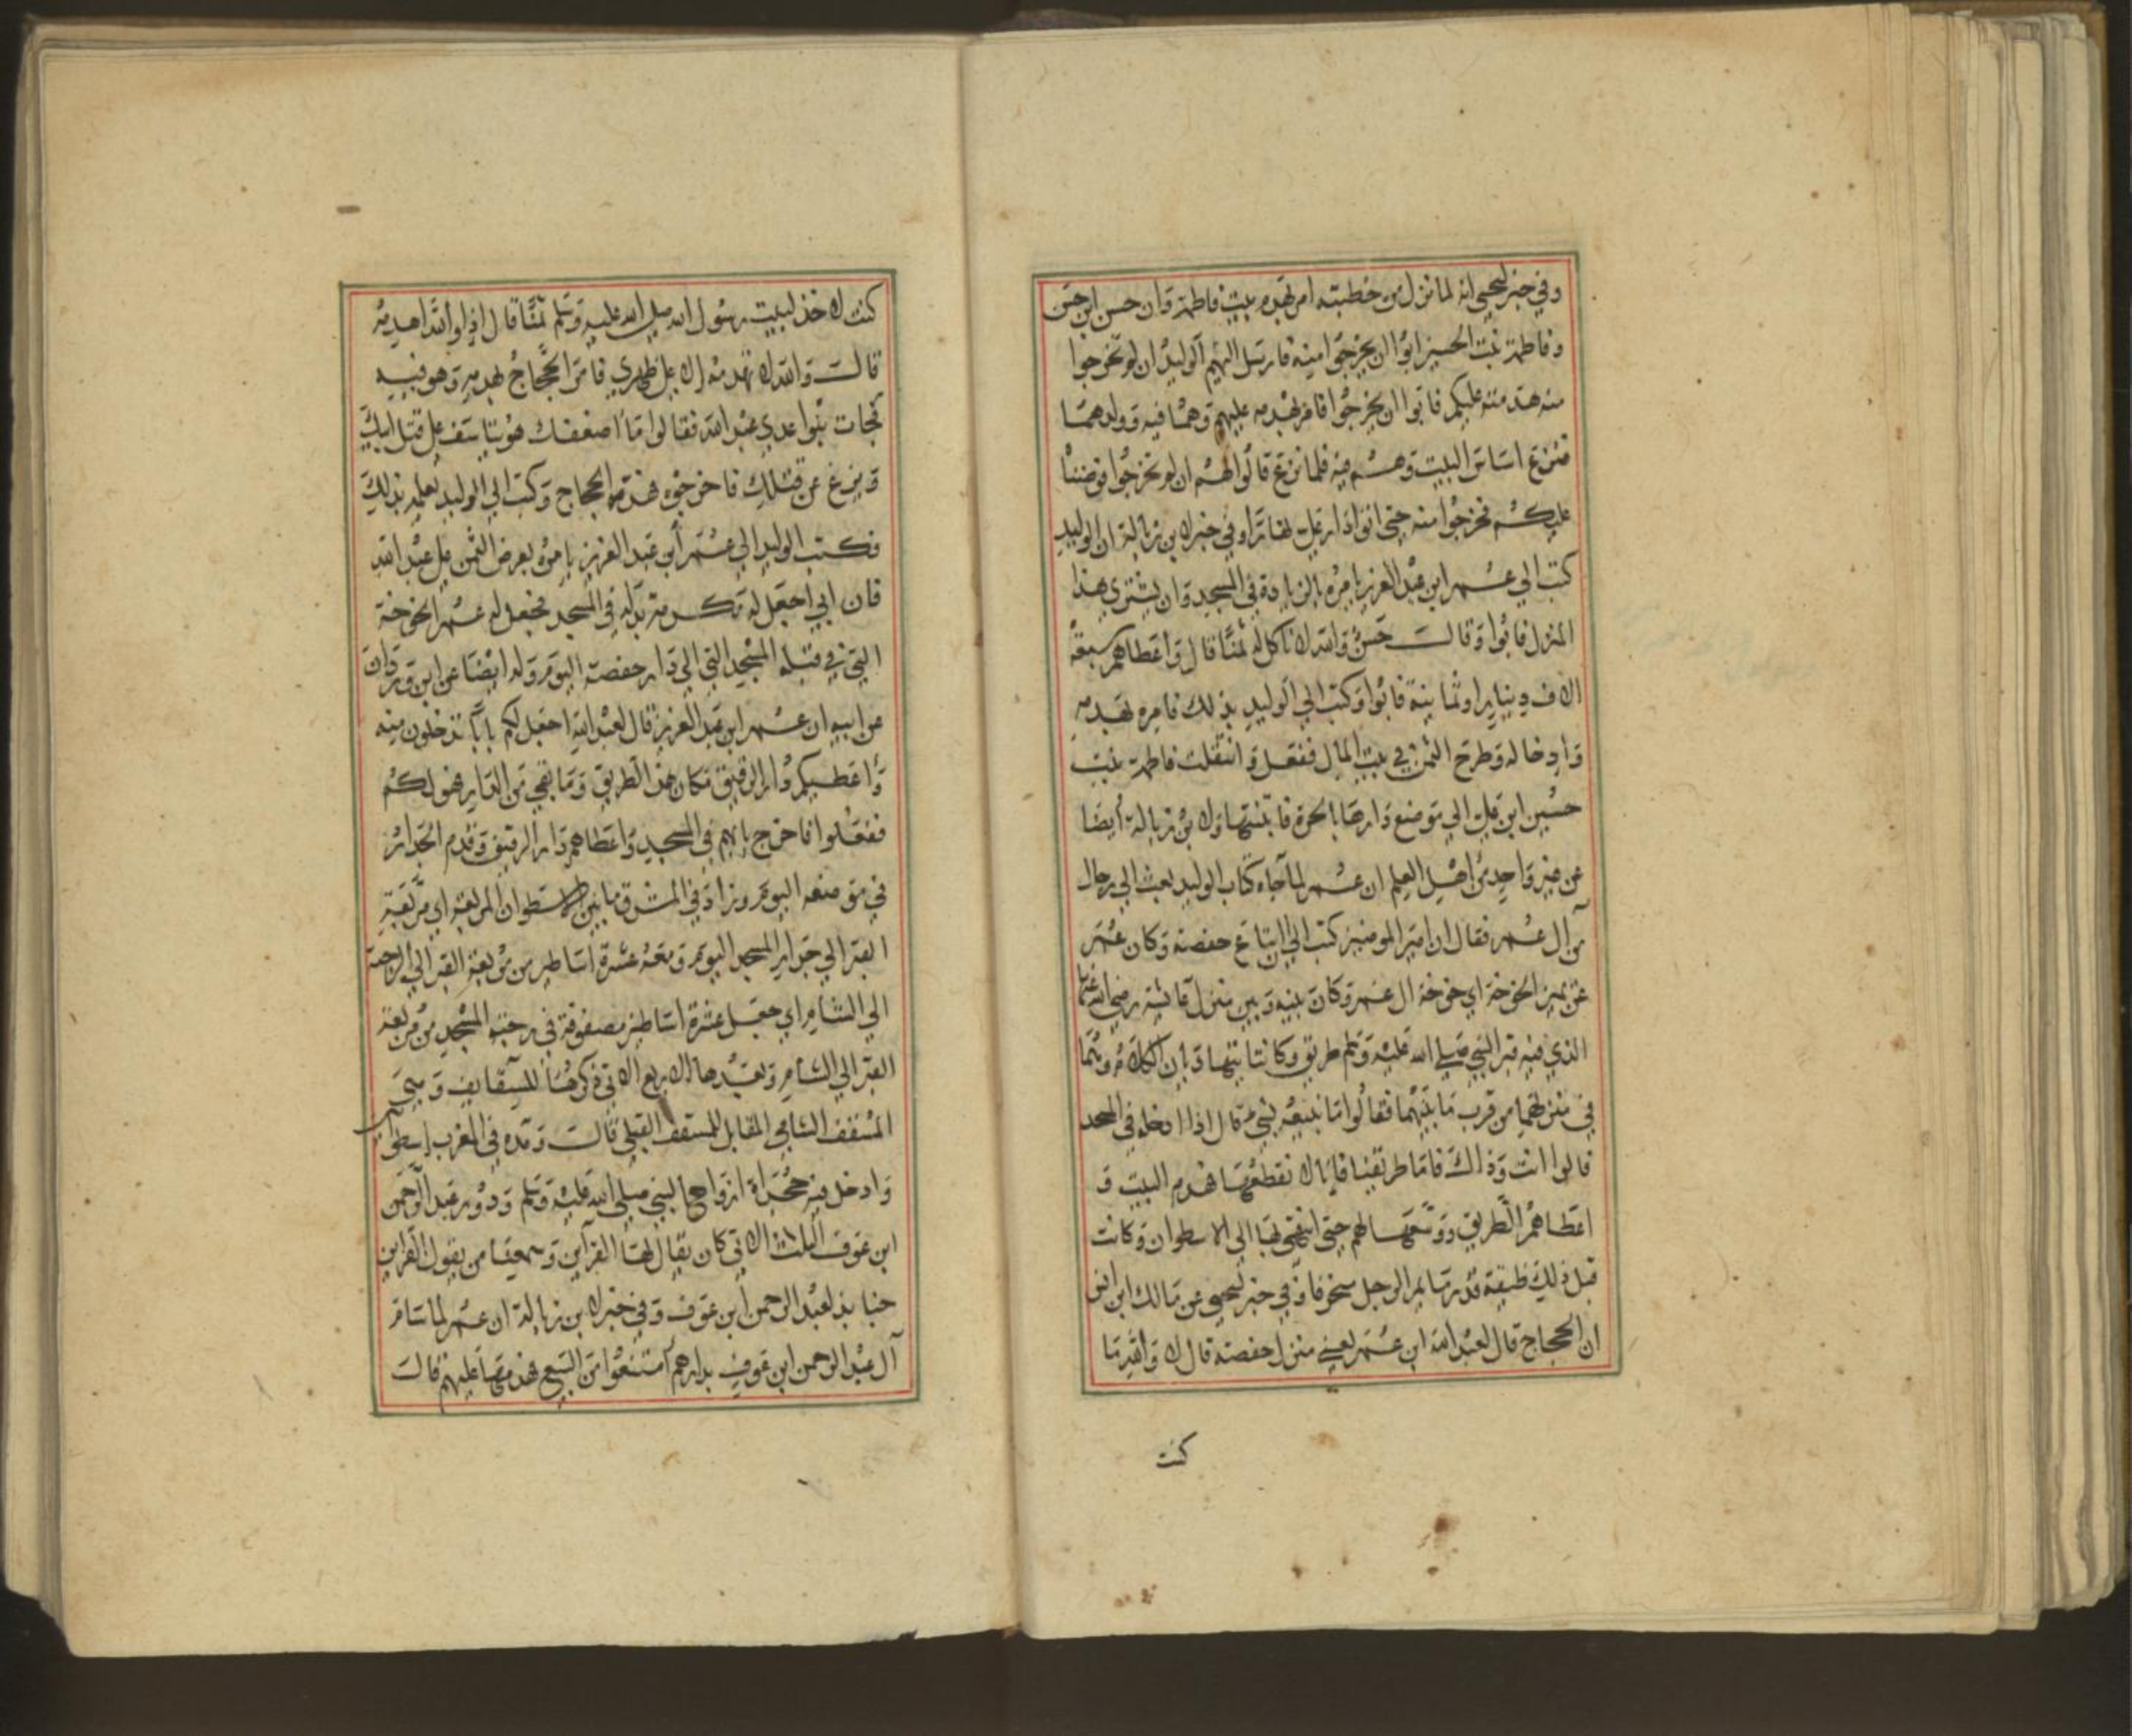 وفي خبر ليحيى انه لما نزل من خطبته امر بهدم بيت فاطمة وان حسن ابن حسن
وفاطمة بنت الحسين ابوا ان يخرجوا منه فارسل اليهم الوليد ان لم تخرجوا
منه هدمته عليكم فابوا ان يخرجوا فامر بهدمه عليهم وهما فيه وولدهما
فنزع اساس البيت وهم فيه فلما نزع قالوا لهم ان لم تخرجوا قوضناه
عليكم فخرجوا منه حتى اتوا دار علي نهارا وفي خبر لابن زبالة ان الوليد
كتب الي عمر ابن عبد العزيز يامره بالزيادة في المسجد وان يشتري هذا
المنزل فابوا وقالت حسن والله لا ناكل له ثمنا قال واعطاهم سبعة
الاف دينارا وثمانية فابوا وكتب الي الوليد بذلك فامره بهدمه
وادخاله وطرح الثمن في بيت المال ففعل وانتقلت فاطمة بنت
حسين ابن علي الي موضع دارها بالحرة فابتنتها ولابن زبالة ايضا
عن غير واحد من اهل العلم ان عمر لما جاه كتاب الوليد بعث الي رجال
من آل عمر فقال ان امير المومنين كتب الي ان ابتاع حفصة وكان عمر
عن يمين الخوخة اي خوخة ال عمر وكان بينه وبين منزل عائشة رضي الله عنها
الذي فيه قبر النبي صلى الله عليه وسلم طريق وكانتا يتهاديان الكلام وهما
في منزلهما من قرب ما بينهما فقالوا ما نبيعه بشي قال اذا ادخله في المسجد
قالوا انت وذاك فاما طريقنا فانا لا نقطعها فهدم البيت و
اعطاهم الطريق ووسعها لهم حتى انتهى بها الى الاسطوان وكانت
قبل ذلك ضيقة قدر ما يمر الرجل منحرفا وفي خبر ليحيى عن مالك ابن انس
ان الحجاج قال لعبد الله ابن عمر بعني منزل حفصة قال لا والله ما
كنت
كنت لاخذ لبيت رسول الله صلى الله عليه وسلم ثمنا قال اذا والله اهدمه
قالت والله لا تهدمه الا على ظهري فامر الحجاج بهدمه وهو فيه
فجات بنوا عدي عبد الله فقالوا ما اضعفك هو يتاسف على قتل ابيك
وينزع عن قتلك فاخرجوه فهدمه الحجاج وكتب الي الوليد يعلمه بذلك
فكتب الوليد الي عمر ابن عبد العزيز يامره بعرض الثمن على عبد الله
فان ابي اجعل له تكرمة بداله في المسجد فجعل له عمر الخوخة
التي في قبلة المسجد التي الي دار حفصة اليوم وله ايضا عن ابن وردان
عن ابيه ان عمر ابن عبد العزيز قال لعبد الله اجعل لكم بابا تدخلون منه
واعطيكم دار الرقيق مكان هذا الطريق وما بقي من الدار فهو لكم
ففعلوا فاخرج بابهم في المسجد واعطاهم دار الرقيق وقدم الجدار
في موضعه اليوم وزاد في المشرق ما بين الاسطوان المربعة اي مربعة
القبر الي جدار المسجد اليوم ومعه عشرة اساطين من مربعة القبر الي الرحبة
الي الشام اي جعل عشرة اساطين مصفوفة في رحبة المسجد من مربعة
القبر الي الشام وبعدها الاربع الاتي ذكرها للسقايف وهي
المسقف الشامي المقابل للمسقف القبلي قالت ومده في المغرب اسطوانتين
وادخل فيه حجرات ازواج النبي صلى الله عليه وسلم ودور عبد الرحمن
ابن عوف الثلاث التي كان يقال لها القراين وسمعنا من يقول القراين
جنابذ لعبد الرحمن ابن عوف وفي خبر لابن زبالة ان عمر لما سام
آل عبد الرحمن ابن عوف بدارهم امتنعوا من البيع فهدمها عليهم قالت